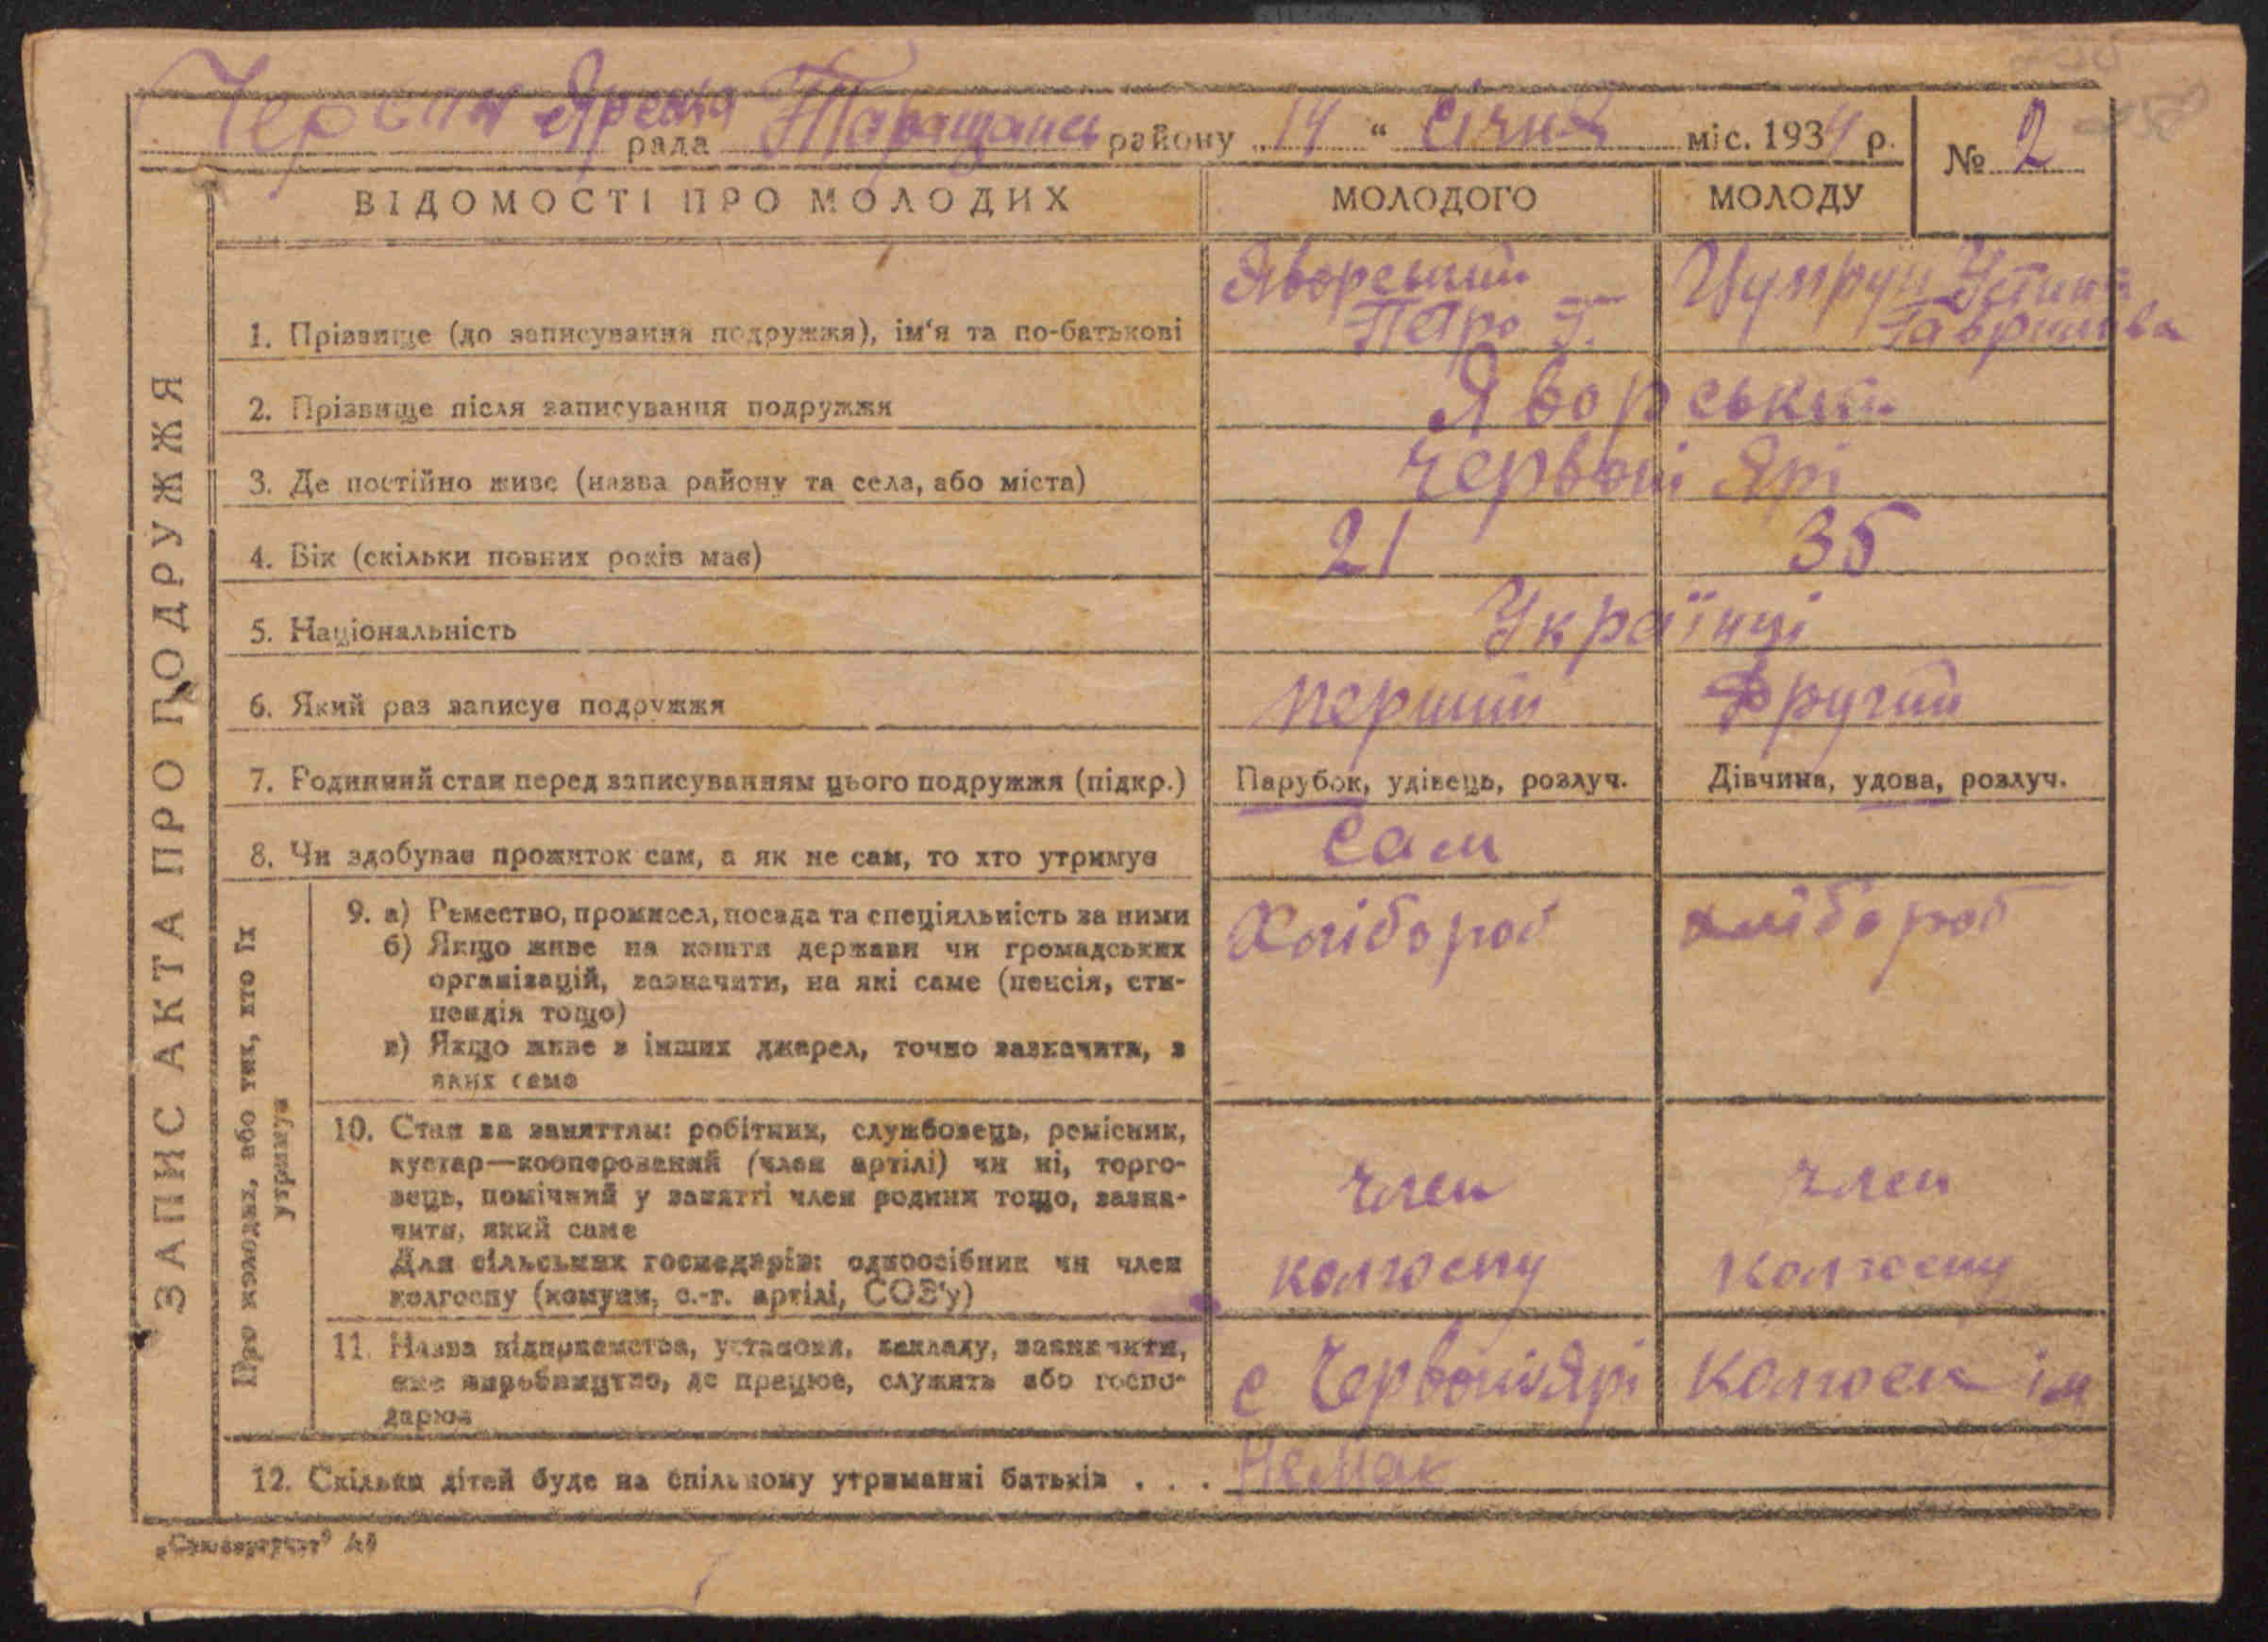 Червон Яренсо рада Таращансь району „ 14 “ Січня міс. 1934 р.
№ 2
ЗАПИС АКТА ПРО ПОДРУЖЖЯ
ВІДОМОСТІ ПРО МОЛОДИХ МОЛОДОГО МОЛОДУ
Яворський
Петро Г.
Устина
Гаврилова
1. Прізвище (до записування подружжя), ім‘я та по-батькові
2. Прізвище після записування подружжя Яворський
3. Де постійно живе (назва району та села, або міста) Червоні Ярі
4. Вік (скільки повних років має) 21 35
5. Національність Українці
6. Який раз записує подружжя перший Другий
7. Родинний стан перед записуванням цього подружжя (підкр.) Парубок, удівець, розлуч. Дівчина, удова, розлуч.
8. Чи здобуває прожиток сам, а як не сам, то хто утримує Сам
Про молодих, або тих, хто їх утримує
9. а) Ремество, промисел, посада та спеціяльність за ними Хлібороб хлібороб
б) Якщо живе на кошти держави чи громадських
організацій, зазначити, на які саме (пенсія, сти-
пендія тощо)
в) Якщо живе з інших джерел, точно зазначити, з
яких саме
10. Стан за заняттям: робітник, службовець, ремісник,
кустар—кооперований (член артілі) чи ні, торго-
вець, помічний у занятті член родини тощо, зазна- член член
чити, який саме
Для сільських господарів: одноосібник чи член
колгоспу (комуни, с.-г. артілі, СОЗ'у) колгоспу колгоспу
11. Назва підприємства, установи, закладу, зазначити,
яке виробництво, де працює, служить або госпо- с Червоні Ярі Колгосп ім
дарює
12. Скільки дітей буде на спільному утриманні батьків . . . Немає